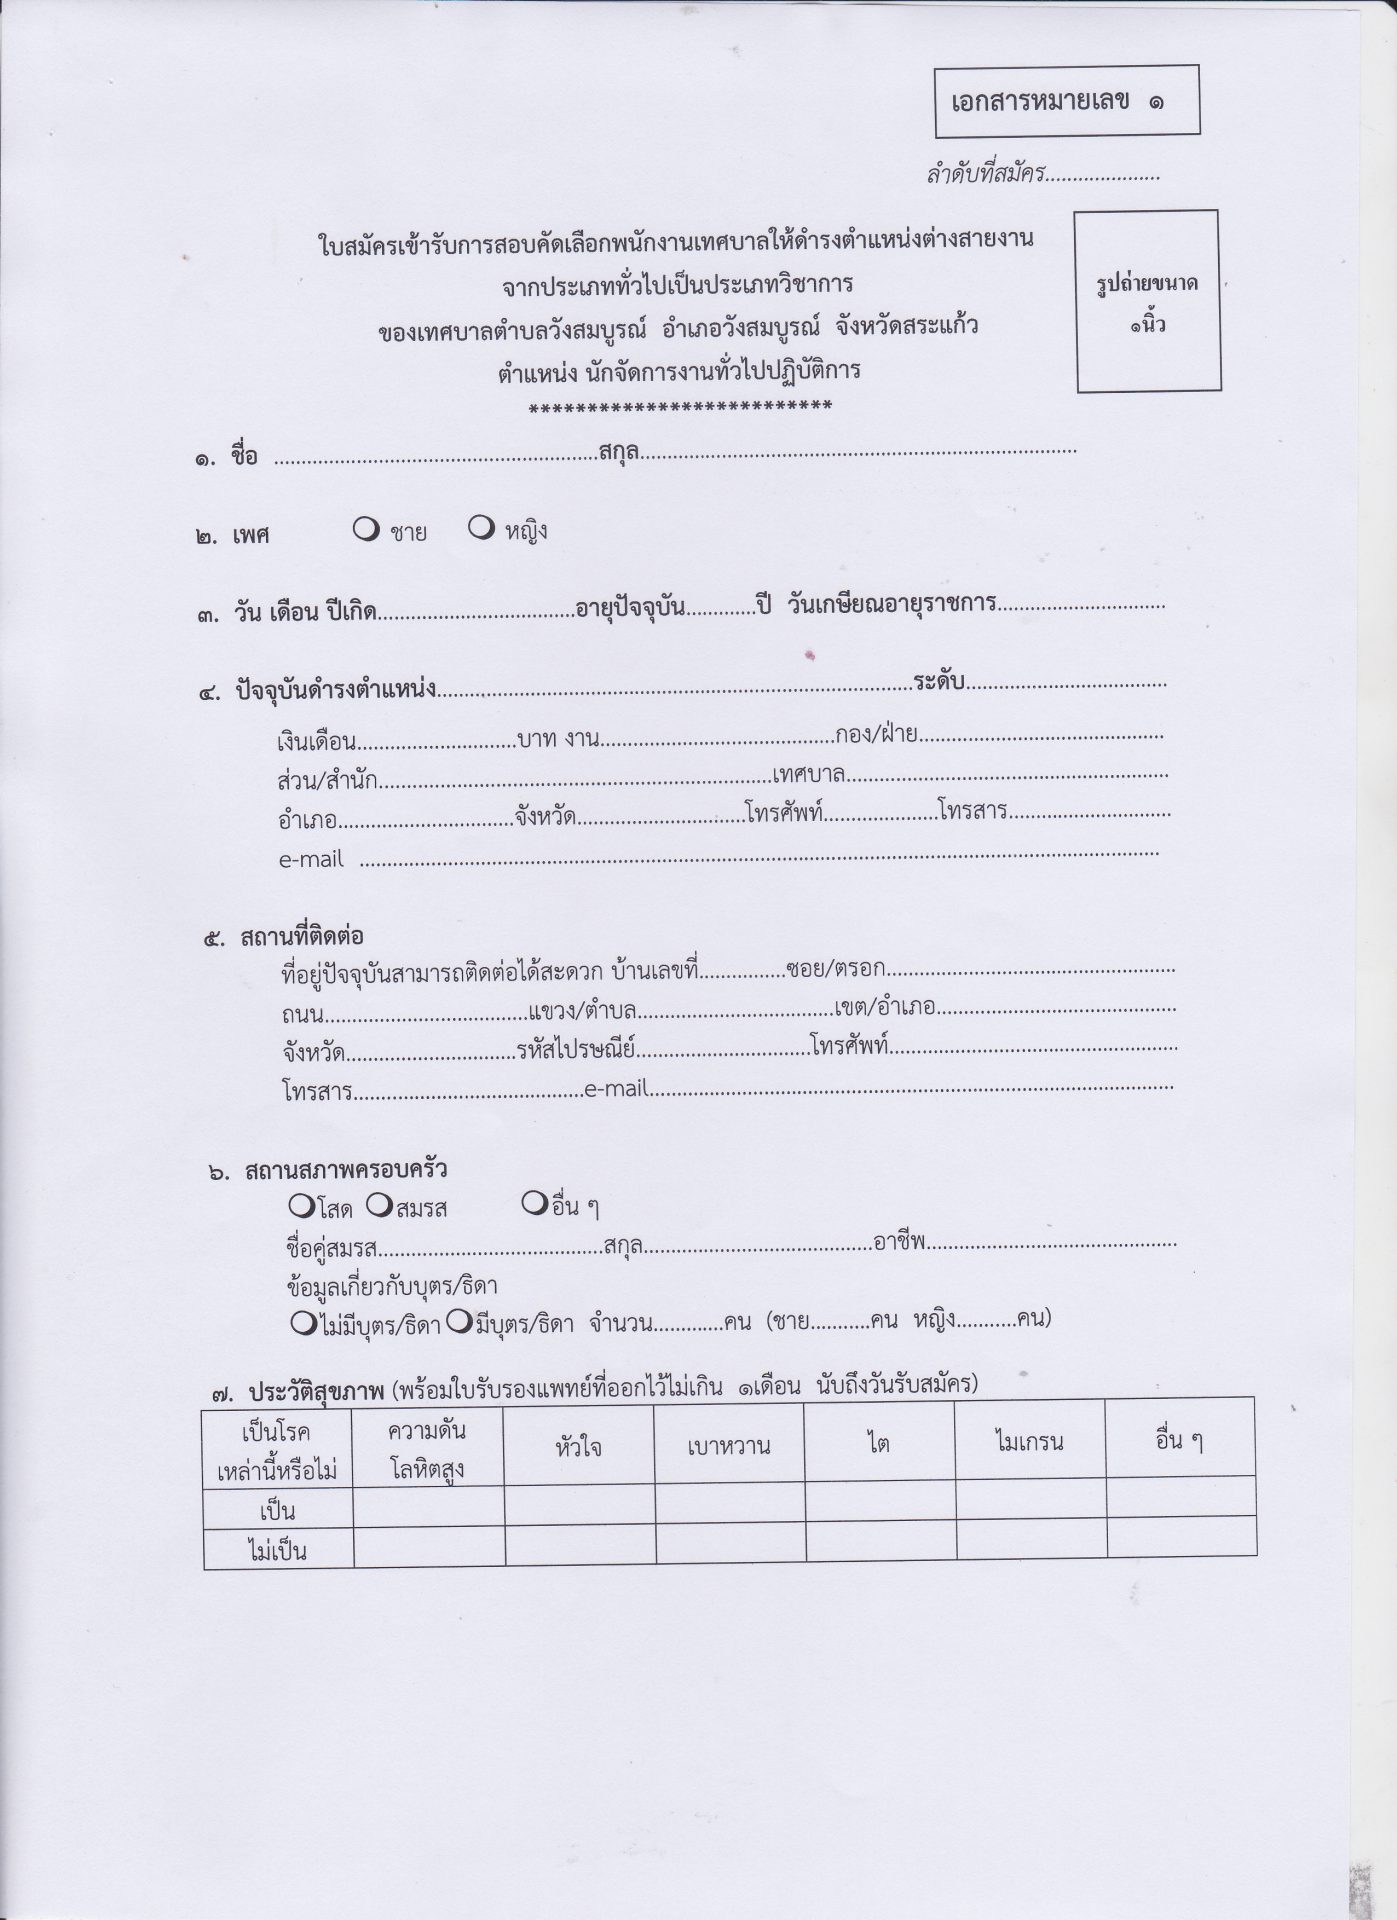 เอกสารหมายเลข ๑
ลำดับที่สมัคร.....................
ใบสมัครเข้ารับการสอบคัดเลือกพนักงานเทศบาลให้ดำรงตำแหน่งต่างสายงาน
จากประเภททั่วไปเป็นประเภทวิชาการ
ของเทศบาลตำบลวังสมบูรณ์ อำเภอวังสมบูรณ์ จังหวัดสระแก้ว
ตำแหน่ง นักจัดการงานทั่วไปปฏิบัติการ
**************************
รูปถ่ายขนาด
๑นิ้ว
๑. ชื่อ ............................................................สกุล................................................................................
๒. เพศ ชาย หญิง
๓. วัน เดือน ปีเกิด....................................อายุปัจจุบัน.............ปี วันเกษียณอายุราชการ...............................
๔. ปัจจุบันดำรงตำแหน่ง.......................................................................................ระดับ.....................................
เงินเดือน.............................บาท งาน...........................................กอง/ฝ่าย.............................................
ส่วน/สำนัก........................................................................เทศบาล...........................................................
อำเภอ................................จังหวัด...............................โทรศัพท์.....................โทรสาร..............................
e-mail ...................................................................................................................................................
๕. สถานที่ติดต่อ
ที่อยู่ปัจจุบันสามารถติดต่อได้สะดวก บ้านเลขที่................ซอย/ตรอก.....................................................
ถนน.....................................แขวง/ตำบล....................................เขต/อำเภอ............................................
จังหวัด...............................รหัสไปรษณีย์................................โทรศัพท์.....................................................
โทรสาร..........................................e-mail................................................................................................
๖. สถานสภาพครอบครัว
โสด สมรส อื่น ๆ
ชื่อคู่สมรส.........................................สกุล..........................................อาชีพ..............................................
ข้อมูลเกี่ยวกับบุตร/ธิดา
ไม่มีบุตร/ธิดา มีบุตร/ธิดา จำนวน.............คน (ชาย...........คน หญิง...........คน)
๗. ประวัติสุขภาพ (พร้อมใบรับรองแพทย์ที่ออกไว้ไม่เกิน ๑เดือน นับถึงวันรับสมัคร)
เป็นโรค
เหล่านี้หรือไม่
ความดัน
โลหิตสูง
หัวใจ
เบาหวาน
ไต
ไมเกรน
อื่น ๆ
เป็น
ไม่เป็น